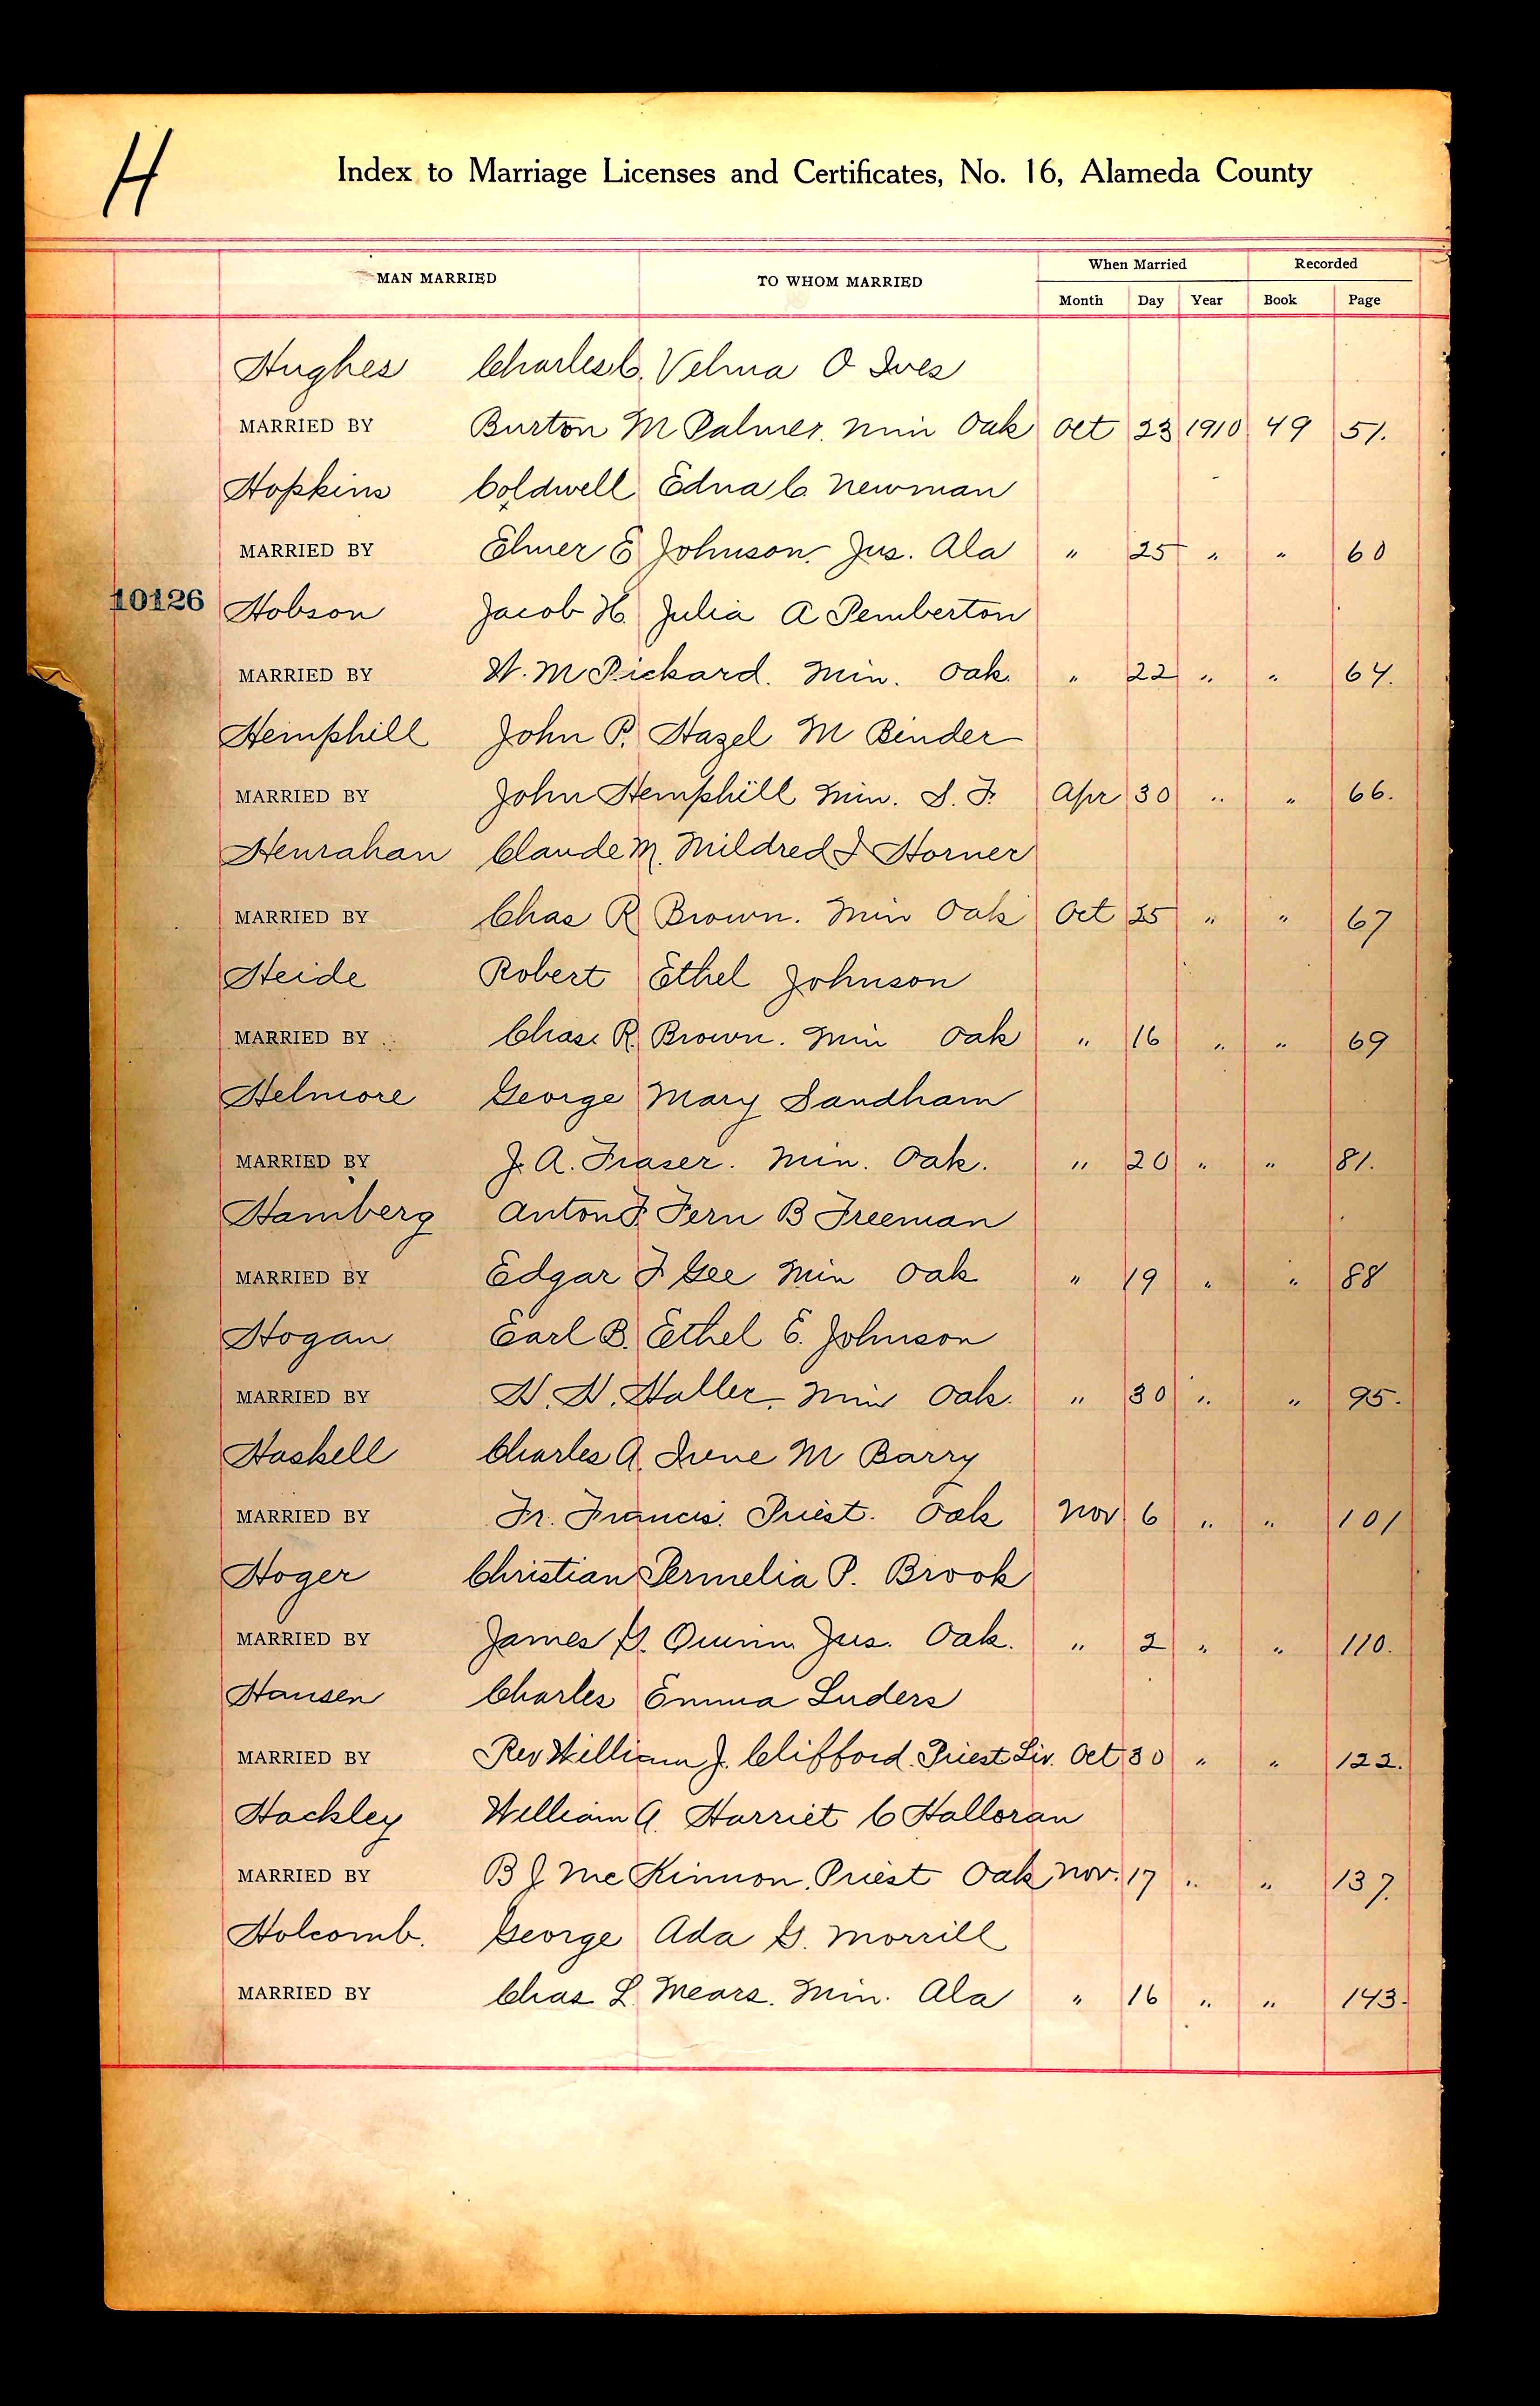 H
Index to Marriage Licenses and Certificates, No. 16, Alameda County
MAN MARRIED TO WHOM MARRIED When Married Recorded
Month Day Year Book Page
Hughes Charles C. Velma O Ives
MARRIED BY Burton M Palmer. Min Oak Oct 23 1910 49 51.
Hopkins Coldwell Edna C. Newman
MARRIED BY Elmer E Johnson. Jus. Ala " 25 " " 60
10126 Hobson Jacob H. Julia A Pemberton
MARRIED BY W. M Pickard. Min. Oak. " 22 " " 64.
Hemphill John P. Hazel M Binder
MARRIED BY John Hemphill Min. S. F. Apr 30 " " 66.
Henrahan Claude M. Mildred I Horner
MARRIED BY Chas R Brown. Min Oak Oct 25 " " 67
Heide Robert Ethel Johnson
MARRIED BY Chas. R. Brown. Min Oak " 16 " " 69
Helmore George Mary Sandham
MARRIED BY J. A. Fraser. Min. Oak. " 20 " " 81.
Hamberg Anton F. Fern B Freeman
MARRIED BY Edgar F Gee Min Oak " 19 " " 88
Hogan Earl B. Ethel E. Johnson
MARRIED BY Haller. Min Oak. " 30 " " 95.
Haskell Charles A. Irene M Barry
MARRIED BY Fr. Francis. Priest. Oak Nov 6 " " 101
Hoger Christian Permelia P. Brook
MARRIED BY James G. Quinn Jus. Oak. " 2 " " 110.
Hansen Charles Emma Luders
MARRIED BY Rev William J. Clifford. Priest Liv. Oct 30 " " 122.
Hackley William A. Harriet C Halloran
MARRIED BY B J McKinnon. Priest Oak Nov. 17 " " 137.
Holcomb. George Ada G. Morrill
MARRIED BY Chas L. Mears. Min. Ala " 16 " " 143.